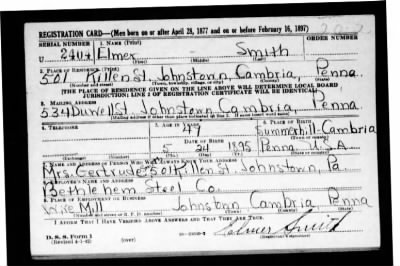 REGISTRATION CARD—(Men born on or after April 28, 1877 and on or before February 16, 1897)
SERIAL NUMBER 1. NAME (Print) ORDER NUMBER
U Elmer Smith
2. PLACE OF RESIDENCE (Print)
521 Killen St. Johnstown, Cambria, Penna.
(Number and street) (Town, township, village, or city) (County) (State)
[THE PLACE OF RESIDENCE GIVEN ON THE LINE ABOVE WILL DETERMINE LOCAL BOARD
JURISDICTION; LINE 2 OF REGISTRATION CERTIFICATE WILL BE IDENTICAL]
3. MAILING ADDRESS
534 Duwell St. Johnstown Cambria, Penna.
[Mailing address if other than place indicated on line 2. If same insert word same]
4. TELEPHONE 5. AGE IN YEARS 6. PLACE OF BIRTH
49 Summerhill-Cambria
DATE OF BIRTH (Town or county)
5 24 1895 Penna. U.S.A.
(Exchange) (Number) (Mo.) (Day) (Yr.) (State or country)
7. NAME AND ADDRESS OF PERSON WHO WILL ALWAYS KNOW YOUR ADDRESS
Mrs. Gertrude 501 Killen St. Johnstown, Pa.
8. EMPLOYER'S NAME AND ADDRESS
Bethlehem Steel Co.
9. PLACE OF EMPLOYMENT OR BUSINESS
Wire Mill Johnstown Cambria Penna
(Number and street or R. F. D. number) (Town) (County) (State)
I AFFIRM THAT I HAVE VERIFIED ABOVE ANSWERS AND THAT THEY ARE TRUE.
D. S. S. Form 1
(Revised 4-1-42) (over) Elmer Smith